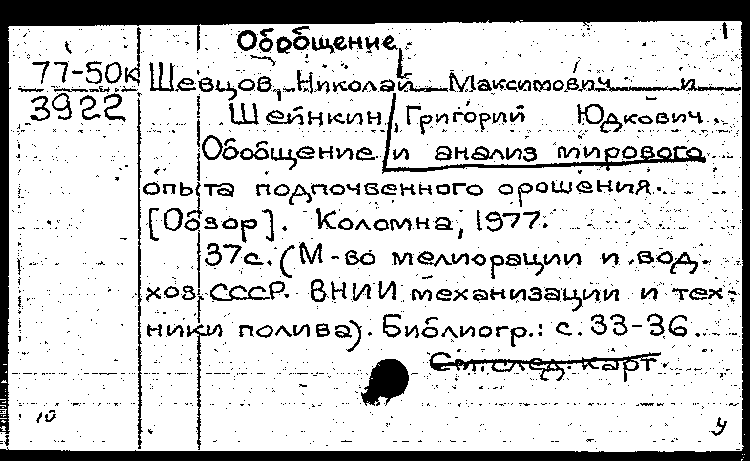 Обобщение
77-50к Шевцов, Николай Максимович и
3922 Шейнкин, Григорий Юдкович.
Обобщение и анализ мирового
опыта подпочвенного орошения.
[Обзор]. Коломна, 1977.
37с. (М-во мелиорации и вод.
хоз. СССР. ВНИИ механизации и тех-
ники полива). Библиогр.: с. 33-36.
См. след. карт.
10